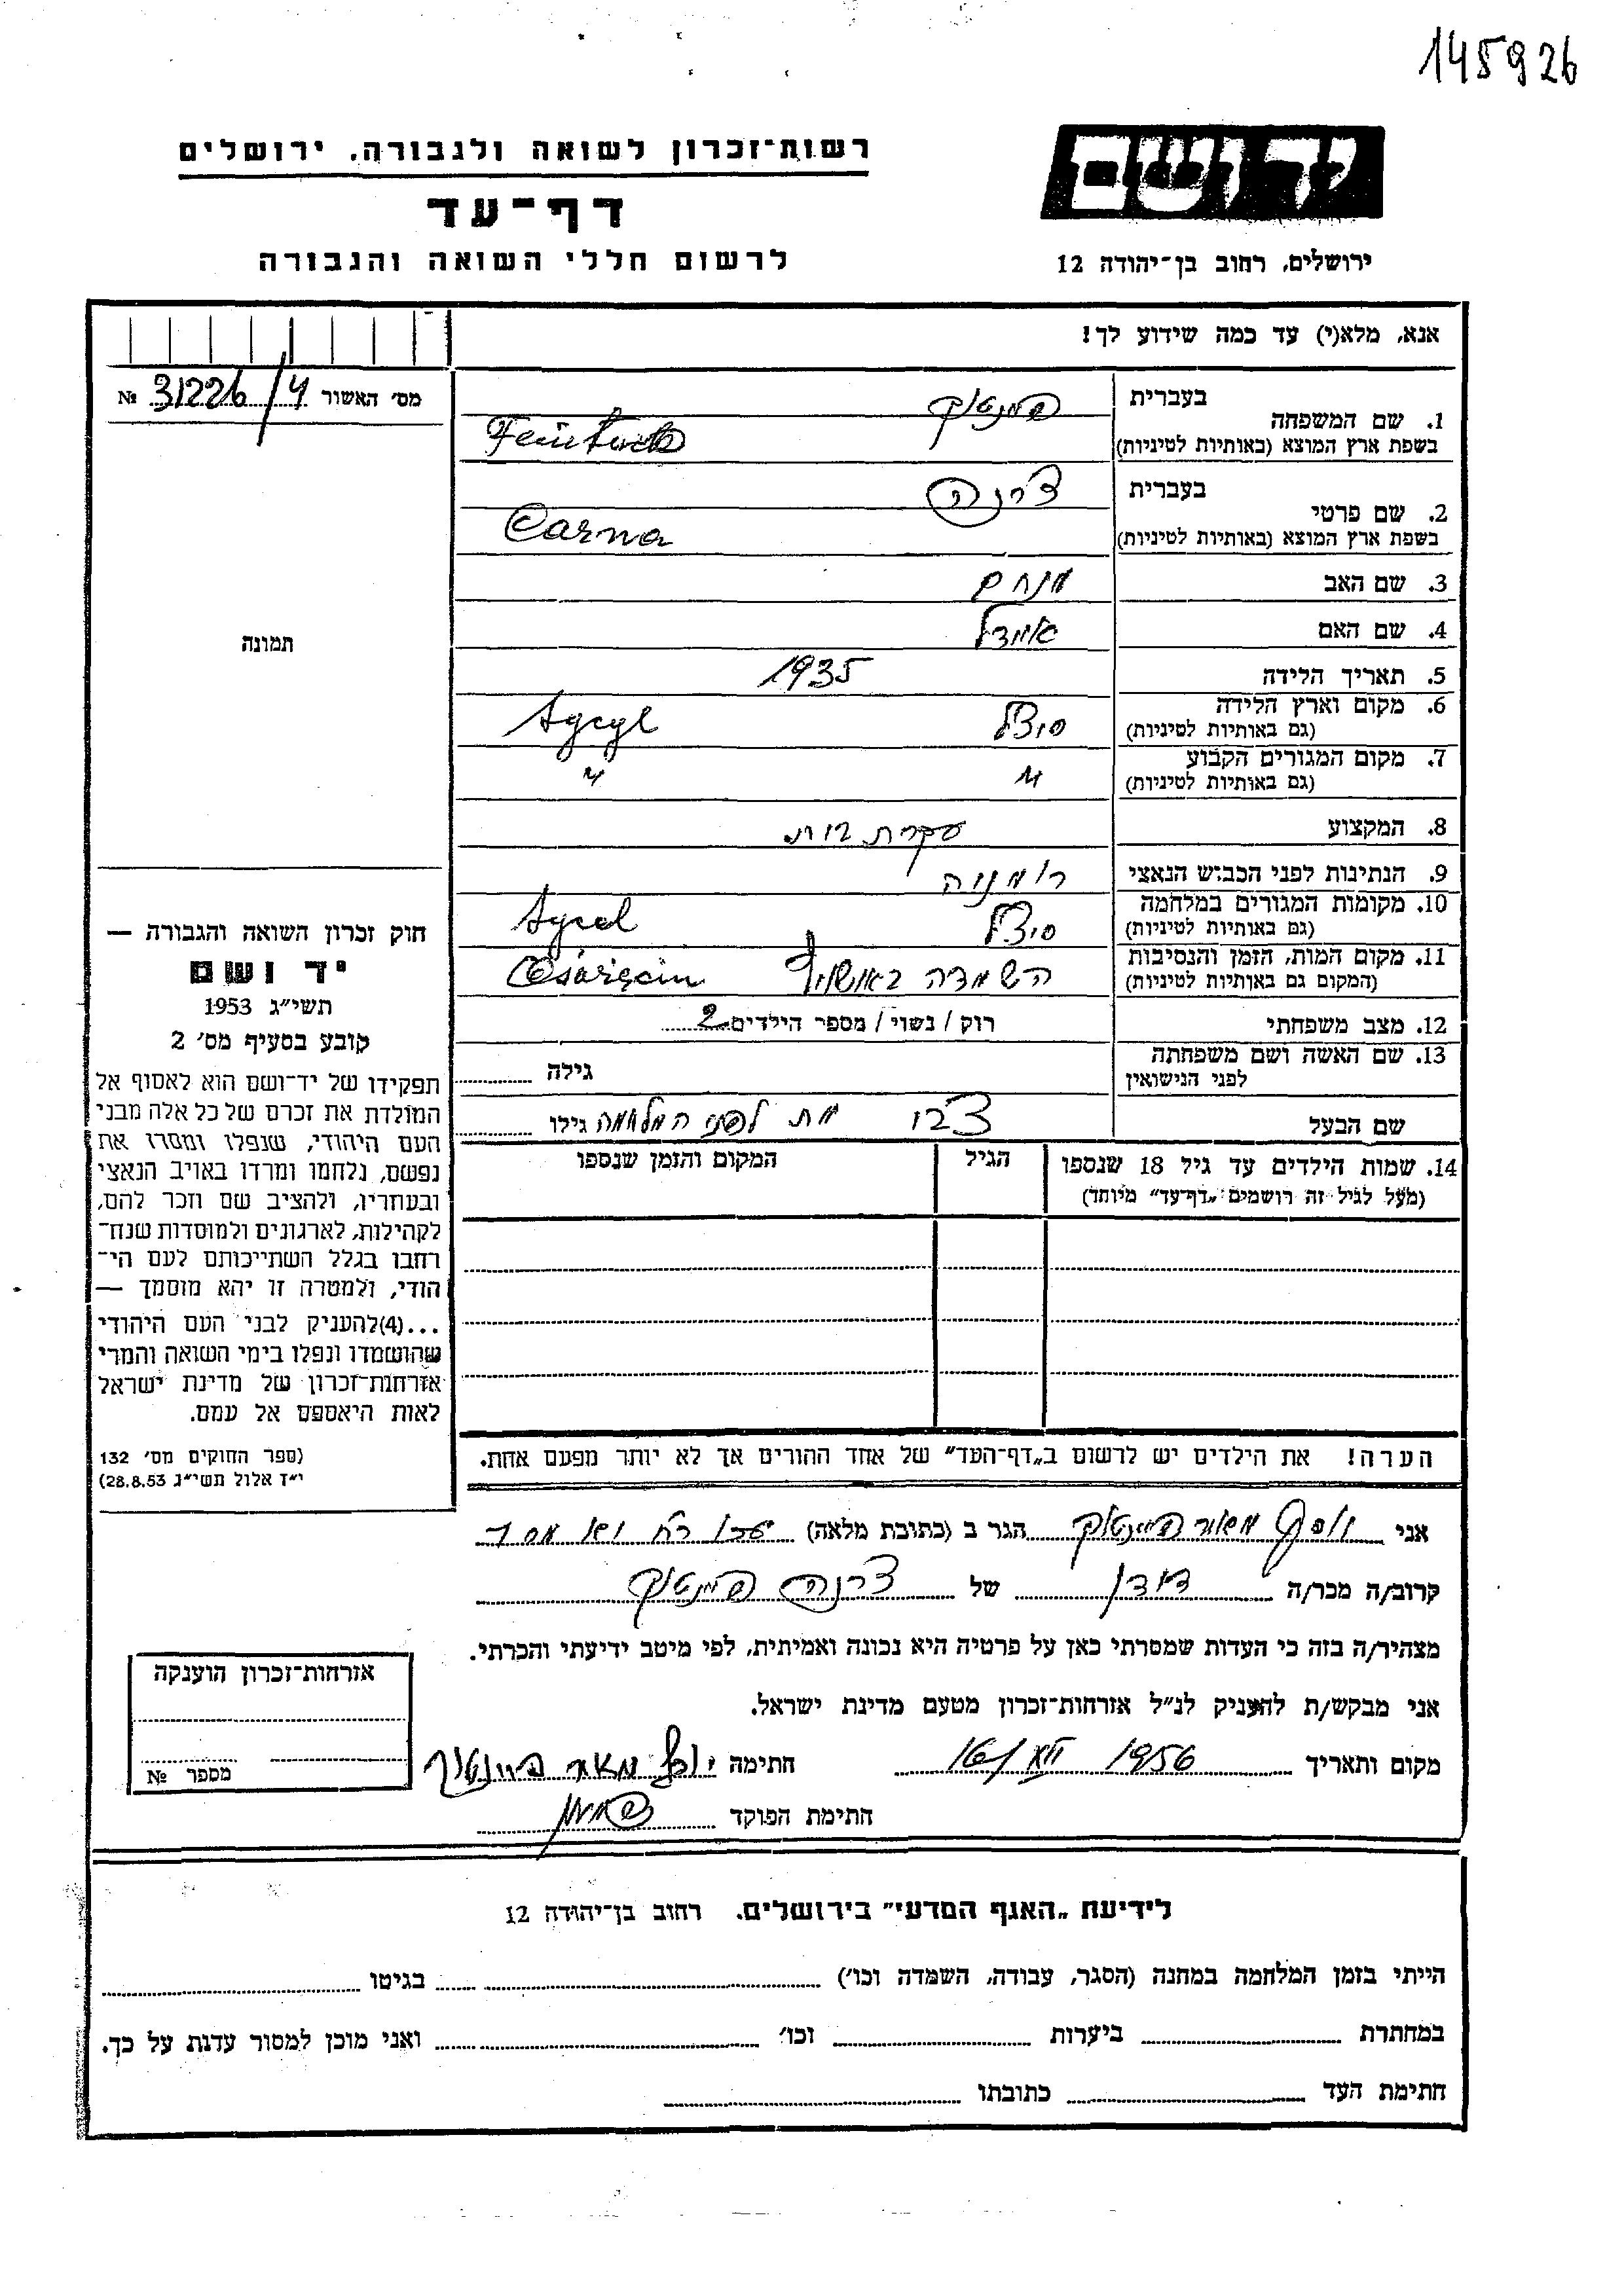 145926
יד ושם
ירושלים, רחוב בן־יהודה 12
רשות־זכרון לשואה ולגבורה, ירושלים
דף־עד
לרשום חללי השואה והגבורה
אנא, מלא(י) עד כמה שידוע לך!
מס׳ האשור 31226/4 №
תמונה
בעברית
1. שם המשפחה
בשפת ארץ המוצא (באותיות לטיניות)
בעברית צרנה
2. שם פרטי
בשפת ארץ המוצא (באותיות לטיניות) Carna
3. שם האב מנחם
4. שם האם
5. תאריך הלידה 1935
6. מקום וארץ הלידה
(גם באותיות לטיניות)
7. מקום המגורים הקבוע " "
(גם באותיות לטיניות)
8. המקצוע עקרת בית
9. הנתינות לפני הכבוש הנאצי
10. מקומות המגורים במלחמה
(גם באותיות לטיניות)
11. מקום המות, הזמן והנסיבות השמדה
(המקום גם באותיות לטיניות)
12. מצב משפחתי רוק / נשוי / מספר הילדים 2
13. שם האשה ושם משפחתה
לפני הנישואין גילה
שם הבעל מת לפני המלחמה גילו
14. שמות הילדים עד גיל 18 שנספו הגיל המקום והזמן שנספו
(מעל לגיל זה רושמים „דף־עד״ מיוחד)
הערה! את הילדים יש לרשום ב„דף־העד״ של אחד ההורים אך לא יותר מפעם אחת.
חוק זכרון השואה והגבורה —
יד ושם
תשי״ג 1953
קובע בסעיף מס׳ 2
תפקידו של יד־ושם הוא לאסוף אל
המולדת את זכרם של כל אלה מבני
העם היהודי, שנפלו ומסרו את
נפשם, נלחמו ומרדו באויב הנאצי
ובעוזריו, ולהציב שם וזכר להם,
לקהילות, לארגונים ולמוסדות שנח־
רבו בגלל השתייכותם לעם הי־
הודי, ולמטרה זו יהא מוסמך —
...(4)להעניק לבני העם היהודי
שהושמדו ונפלו בימי השואה והמרי
אזרחות־זכרון של מדינת ישראל
לאות היאספם אל עמם.
(ספר החוקים מס׳ 132
י״ד אלול תשי״ג 28.8.53)
אני מאור פיינטוך הגר ב (כתובת מלאה)
קרוב/ה מכר/ה של צרנה פיינטוך
מצהיר/ה בזה כי העדות שמסרתי כאן על פרטיה היא נכונה ואמיתית, לפי מיטב ידיעתי והכרתי.
אני מבקש/ת להעניק לנ״ל אזרחות־זכרון מטעם מדינת ישראל.
מקום ותאריך 1956 חתימה מאור פיינטוך
חתימת הפוקד
אזרחות־זכרון הוענקה
מספר №
לידיעת „האגף המדעי״ בירושלים. רחוב בן־יהודה 12
הייתי בזמן המלחמה במחנה (הסגר, עבודה, השמדה וכו׳) בגיטו
במחתרת ביערות וכו׳ ואני מוכן למסור עדות על כך.
חתימת העד כתובתו